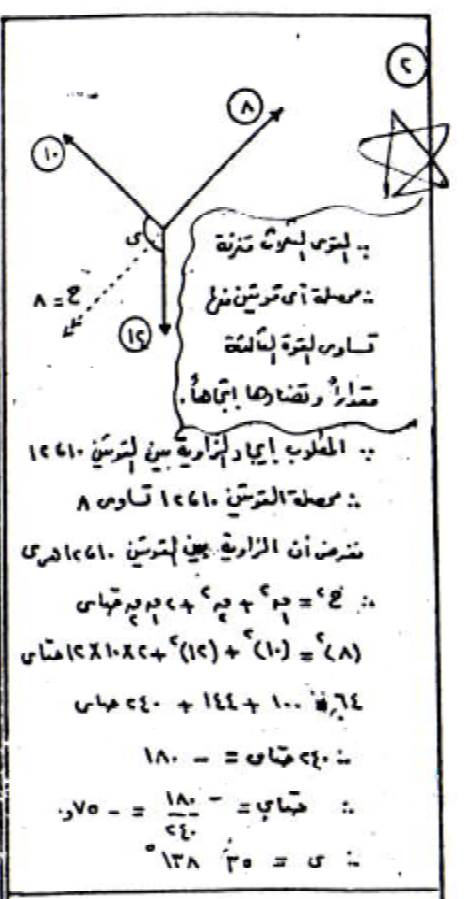 ٢
٨
١٠
ى
ح = ٨
١٢
∵ القوى الثلاث متزنة
∴ محصلة أى قوتين منها
تساوى القوة الثالثة
مقداراً وتضادها إتجاهاً.
∵ المطلوب إيجاد الزاوية بين القوتين ١٠، ١٢
∴ محصلة القوتين ١٠، ١٢ تساوى ٨
نفرض أن الزاوية بين القوتين ١٠، ١٢ هى ى
∴ ح² = ق₁² + ق₂² + ٢ ق₁ ق₂ حتاى
(٨)² = (١٠)² + (١٢)² + ٢×١٠×١٢ حتاى
٦٤ = ١٠٠ + ١٤٤ + ٢٤٠ حتاى
∴ ٢٤٠ حتاى = - ١٨٠
∴ حتاى = - ١٨٠/٢٤٠ = - ٧٥و٠
∴ ى = ٣٥ ١٣٨°